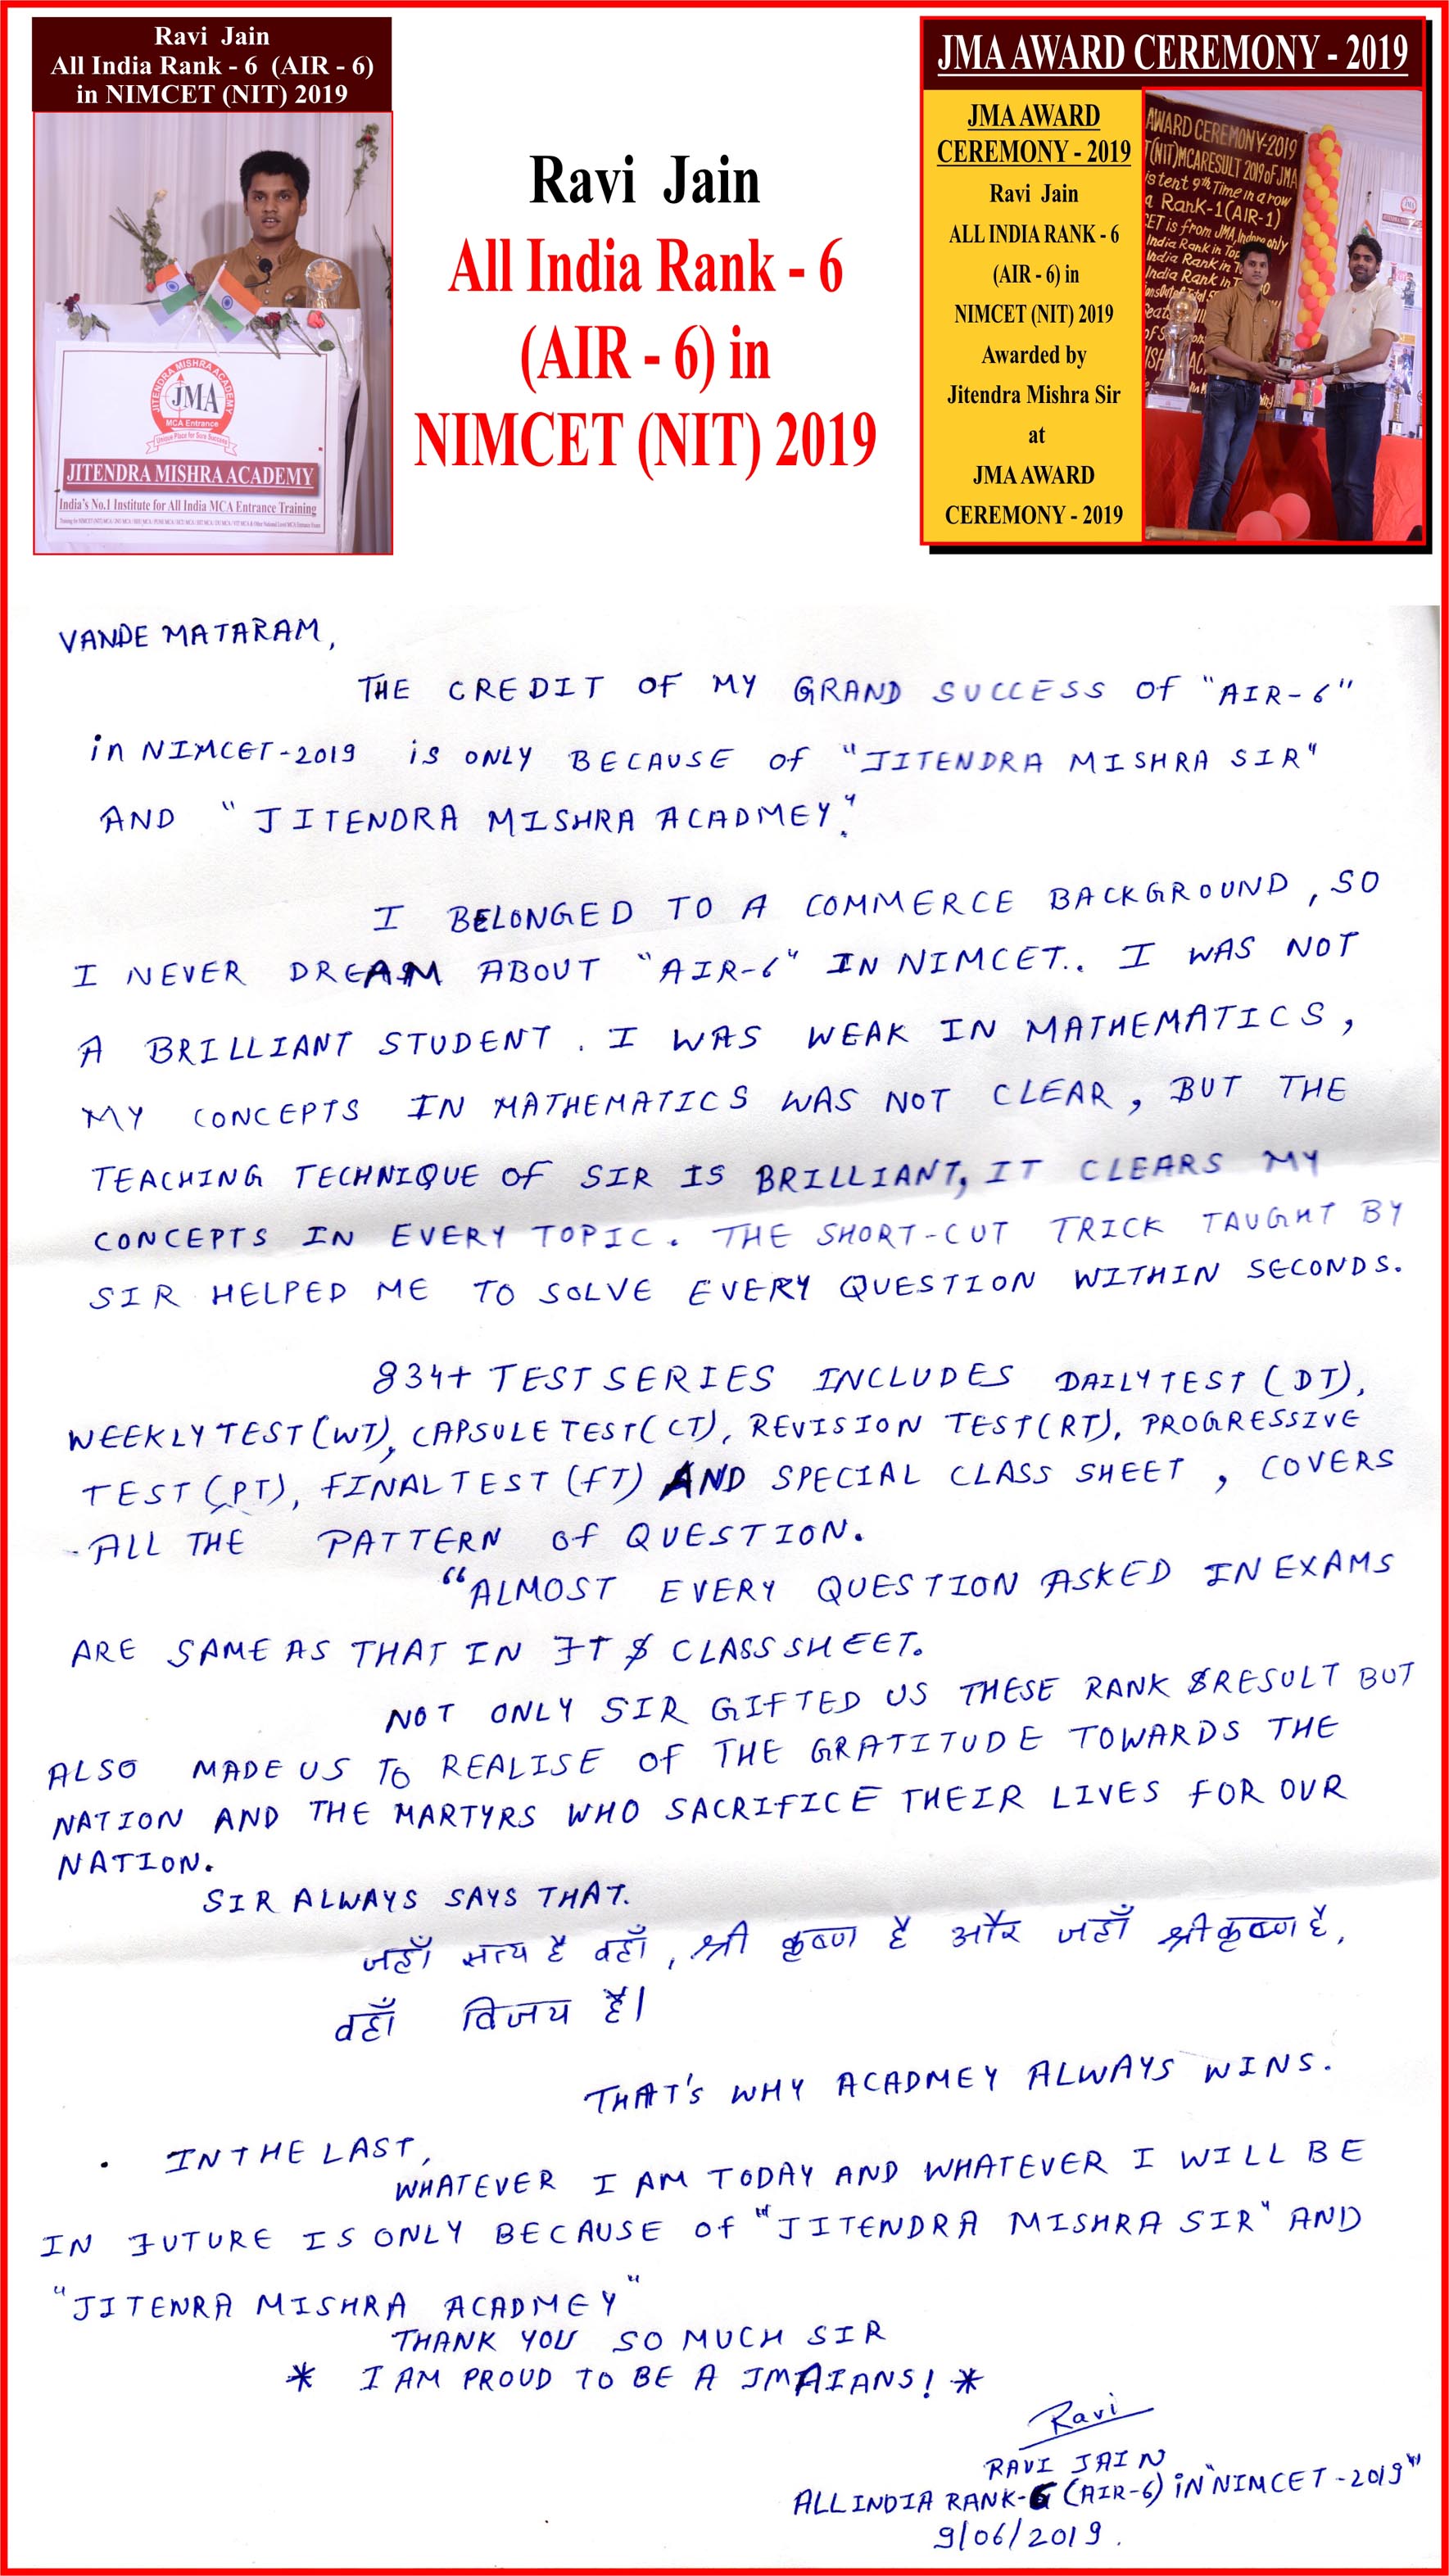 Ravi Jain
All India Rank - 6 (AIR - 6)
in NIMCET (NIT) 2019
JITENDRA MISHRA ACADEMY
JMA
MCA Entrance
Unique Place for Sure Success
JITENDRA MISHRA ACADEMY
India's No.1 Institute for All India MCA Entrance Training
Ravi Jain
All India Rank - 6
(AIR - 6) in
NIMCET (NIT) 2019
JMA AWARD CEREMONY - 2019
JMA AWARD
CEREMONY - 2019
Ravi Jain
ALL INDIA RANK - 6
(AIR - 6) in
NIMCET (NIT) 2019
Awarded by
Jitendra Mishra Sir
at
JMA AWARD
CEREMONY - 2019
AWARD CEREMONY-2019
(NIT) MCA RESULT 2019 of JMA
istent 9th Time in a row
a Rank-1 (AIR-1)
CET is from JMA, Indore only
India Rank in Top
India Rank in
India Rank in
VANDE MATARAM,
THE CREDIT OF MY GRAND SUCCESS OF "AIR-6"
in NIMCET-2019 is ONLY BECAUSE of "JITENDRA MISHRA SIR"
AND "JITENDRA MISHRA ACADMEY".
I BELONGED TO A COMMERCE BACKGROUND, SO
I NEVER DREAM ABOUT "AIR-6" IN NIMCET.. I WAS NOT
A BRILLIANT STUDENT. I WAS WEAK IN MATHEMATICS,
MY CONCEPTS IN MATHEMATICS WAS NOT CLEAR, BUT THE
TEACHING TECHNIQUE OF SIR IS BRILLIANT, IT CLEARS MY
CONCEPTS IN EVERY TOPIC. THE SHORT-CUT TRICK TAUGHT BY
SIR HELPED ME TO SOLVE EVERY QUESTION WITHIN SECONDS.
834+ TEST SERIES INCLUDES DAILY TEST (DT),
WEEKLY TEST (WT), CAPSULE TEST (CT), REVISION TEST (RT), PROGRESSIVE
TEST (PT), FINAL TEST (FT) AND SPECIAL CLASS SHEET, COVERS
ALL THE PATTERN of QUESTION.
"ALMOST EVERY QUESTION ASKED IN EXAMS
ARE SAME AS THAT IN FT & CLASS SHEET.
NOT ONLY SIR GIFTED US THESE RANK & RESULT BUT
ALSO MADE US TO REALISE OF THE GRATITUDE TOWARDS THE
NATION AND THE MARTYRS WHO SACRIFICE THEIR LIVES FOR OUR
NATION.
SIR ALWAYS SAYS THAT.
जहाँ सत्य है वहाँ, श्री कृष्ण है और जहाँ श्री कृष्ण है,
वहाँ विजय है।
THAT'S WHY ACADMEY ALWAYS WINS.
IN THE LAST,
WHATEVER I AM TODAY AND WHATEVER I WILL BE
IN FUTURE IS ONLY BECAUSE of "JITENDRA MISHRA SIR" AND
"JITENRA MISHRA ACADMEY"
THANK YOU SO MUCH SIR
* I AM PROUD TO BE A JMAIANS! *
Ravi
RAVI JAIN
ALL INDIA RANK-6 (AIR-6) iN "NIMCET-2019"
9/06/2019.